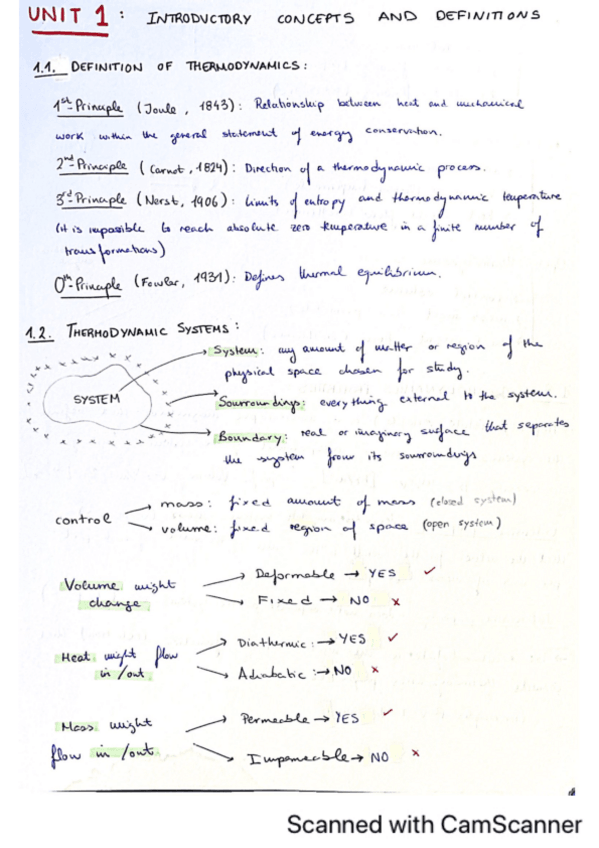 UNIT 1: INTRODUCTORY CONCEPTS AND DEFINITIONS
1.1. DEFINITION OF THERMODYNAMICS:
1st-Principle (Joule, 1843): Relationship between heat and mechanical
work within the general statement of energy conservation.
2nd-Principle (Carnot, 1824): Direction of a thermodynamic process.
3rd-Principle (Nerst, 1906): Limits of entropy and thermodynamic temperature
(it is impossible to reach absolute zero temperature in a finite number of
transformations)
0th-Principle (Fowler, 1931): Defines thermal equilibrium.
1.2. THERMODYNAMIC SYSTEMS:
SYSTEM
→ System: any amount of matter or region of the
physical space chosen for study.
→ Sourroundings: everything external to the system.
→ Boundary: real or imaginary surface that separates
the system from its sourroundings
control
→ mass: fixed amount of mass (closed system)
→ volume: fixed region of space (open system)
Volume might
change
→ Deformable → YES ✓
→ Fixed → NO ×
Heat might flow
in/out
→ Diathermic: → YES ✓
→ Adiabatic: → NO ×
Mass might
flow in/out
→ Permeable → YES ✓
→ Impermeable → NO ×
Scanned with CamScanner